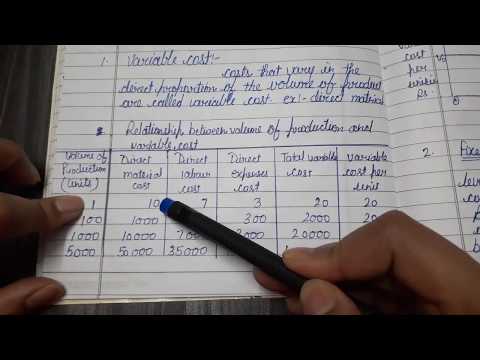 1. Variable cost:-
costs that vary in the
direct proportion of the volume of product
are called variable cost. ex:- direct material
2. Relationship between volume of production and
variable cost
Volume of Production (units) Direct material cost Direct labour cost Direct expenses cost Total variable cost variable cost per unit
1 10 7 3 20 20
100 1000 300 2000 20
1000 10000 20000
5000 50000 35000
cost
per
2. Fixe